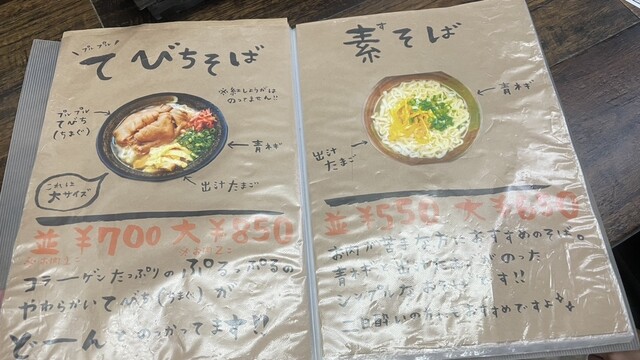 プルプル
てびちそば
※紅しょうがは
のってません!!
プルプル
てびち
(ちまぐ)
青ネギ
出汁たまご
これは
大サイズ
並 ¥700 大 ¥850
コラーゲンたっぷりの ぷるっぷるの
やわらかいてびち(ちまぐ)が
どーんとのっかってます!!
素そば
す
青ネギ
出汁
たまご
並 ¥550 大
お肉が苦手な方におすすめのそば。
青ネギと出汁たまごがのった
シンプルなおそばです!!
二日酔いの方にもおすすめですよ